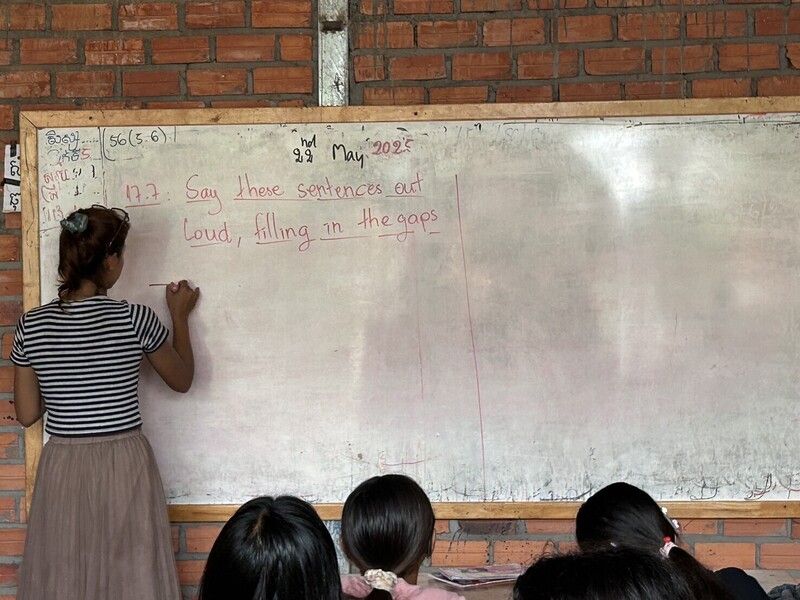 56(5-6)
22nd May 2025
17.7: Say these sentences out
loud, filling in the gaps